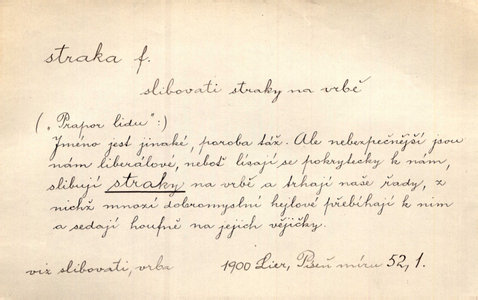 straka f.
slibovati straky na vrbě
(„Prapor lidu":)
Jméno jest jinaké, poroba táž. Ale nebezpečnější jsou
nám liberálové, neboť lísají se pokrytecky k nám,
slibují straky na vrbě a trhají naše řady, z
nichž mnozí dobromyslní hejlové přebíhají k nim
a sedají houfně na jejich vějičky.
viz slibovati, vrba 1900 Lier, Píseň míru 52, 1.